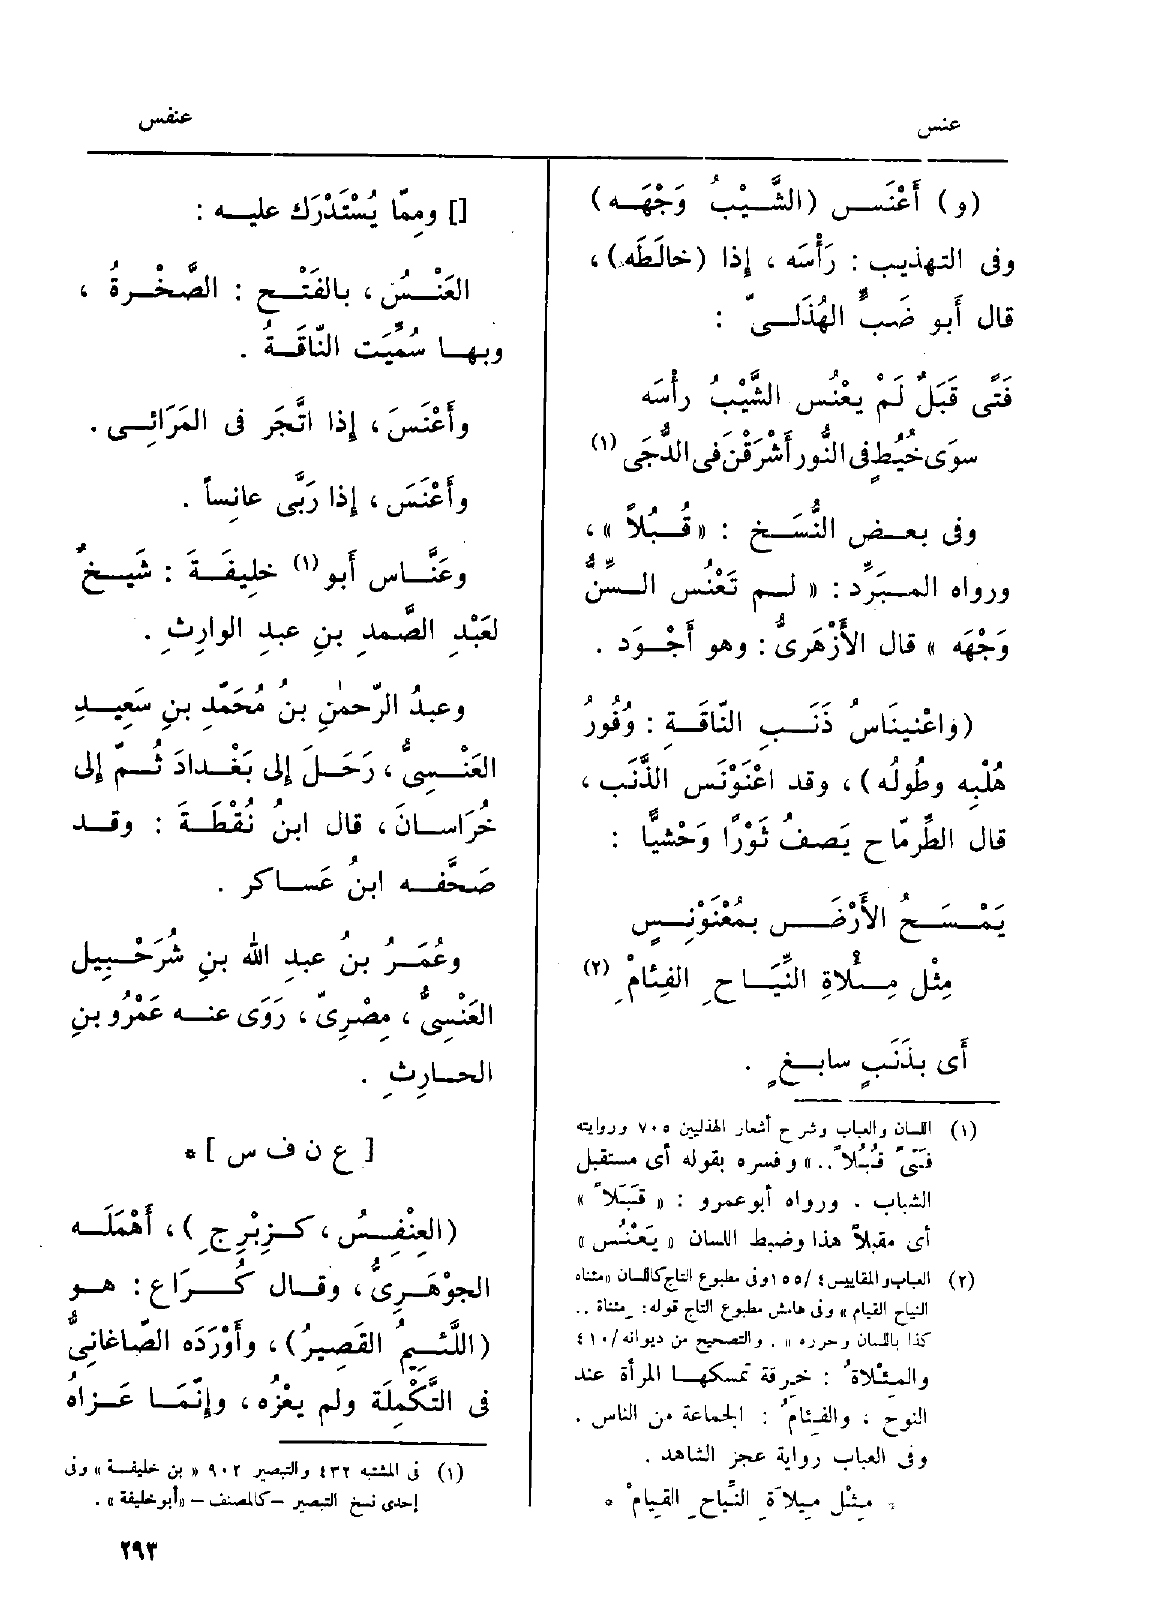 عنس
عنفس
(و) أَعْنَس (الشَّيْبُ وَجْهَه)
وفى التهذيب : رَأْسَه ، إذا (خالَطَه)،
قال أَبو ضَبٍّ الهُذَلىّ :
فَتًى قَبَلٌ لَمْ يعْنُس الشَّيْبُ رأْسَه
سوَى خُيُطٍ فى النُّور أَشْرَقْنَ فى الدُّجَى (١)
وفى بعض النُّسَخ : «قُبُلاً » ،
ورواه المبَرِّد : « لم تَعْنُس السِّنُّ
وَجْهَه » قال الأَزْهَرىُّ : وهو أَجْوَد .
(وَاعْنِينَاسُ ذَنَبِ النَّاقَةِ : وُفُورُ
هُلْبِه وطُولُه) ، وقد اعْنَوْنَس الذَّنَب ،
قال الطِّرمّاح يَصفُ ثَوْرًا وَحْشيًّا :
يَمْسَحُ الأَرْضَ بمُعْنَوْنِسٍ
مِثْل مِئْلاةِ النِّيَاحِ الفِئامْ ِ (٢)
أَى بذَنَبٍ سابغٍ .
(١) اللسان والعباب وشرح أشعار الهذليين ٧٠٥ وروايته
فَتىً قُبُلاً ..» وفسره بقوله أى مستقبل
الشباب . ورواه أبو عمرو : « قَبَلاً »
أى مقبلاً هذا وضبط اللسان « يَعْنُس »
(٢) العباب والمقاييس ٤ / ١٥٥ وفى مطبوع التاج كاللسان «مثناه
النياح القيام » وفى هامش مطبوع التاج قوله: مثناة ..
كذا باللسان وحرره » . والتصحيح من ديوانه/ ٤١٠
والمِئلاةُ : خرقة تمسكها المرأة عند
النوح ، والفِئامُ : الجماعة من الناس .
وفى العباب رواية عجز الشاهد .
* مِثْل مِيلاَةِ النِّياحِ القيامْ *
[] ومِمّا يُسْتَدْرَك عليه :
العَنْسُ ، بالفَتْح : الصَّخْرةُ ،
وبها سُمِّيَت النّاقَةُ .
وأَعْنَسَ ، إذا اتَّجَر فى المَرَائِى .
وأَعْنَسَ ، إذا رَبَّى عانِساً .
وعَنَّاس أَبو (١) خليفَة : شَيخٌ
لعَبْدِ الصَّمدِ بنِ عبدِ الوارِثِ .
وعبدُ الرّحمٰنِ بنُ مُحَمّدِ بنِ سَعِيدِ
العَنْسِىُّ ، رَحَلَ إلى بَغْدادَ ثُمّ إلى
خُرَاسانَ ، قال ابنُ نُقْطَةَ : وقد
صَحَّفه ابنُ عَساكر .
وعُمَرُ بنُ عبدِ الله بنِ شُرَحْبِيل
العَنْسِىُّ ، مِصْرِىّ ، رَوَى عنه عَمْرُو بنِ
الحارِثِ .
[ ع ن ف س ] *
(العِنْفِسُ ، كزِبْرِجٍ ) ، أَهْمَلَه
الجوْهَرِىُّ ، وقال كُرَاع : هو
(اللَّئيمُ القَصِيرُ) ، وأَوْرَده الصّاغانىُّ
فى التَّكْمِلَة ولم يعْزُه ، وإنّمَا عَزاهُ
(١) فى المشتبه ٤٣٢ والتبصير ٩٠٢ « بن خليفة » وفى
إحدى نسخ التبصير – كالمصنف – «أبو خليفة » .
٢٩٣